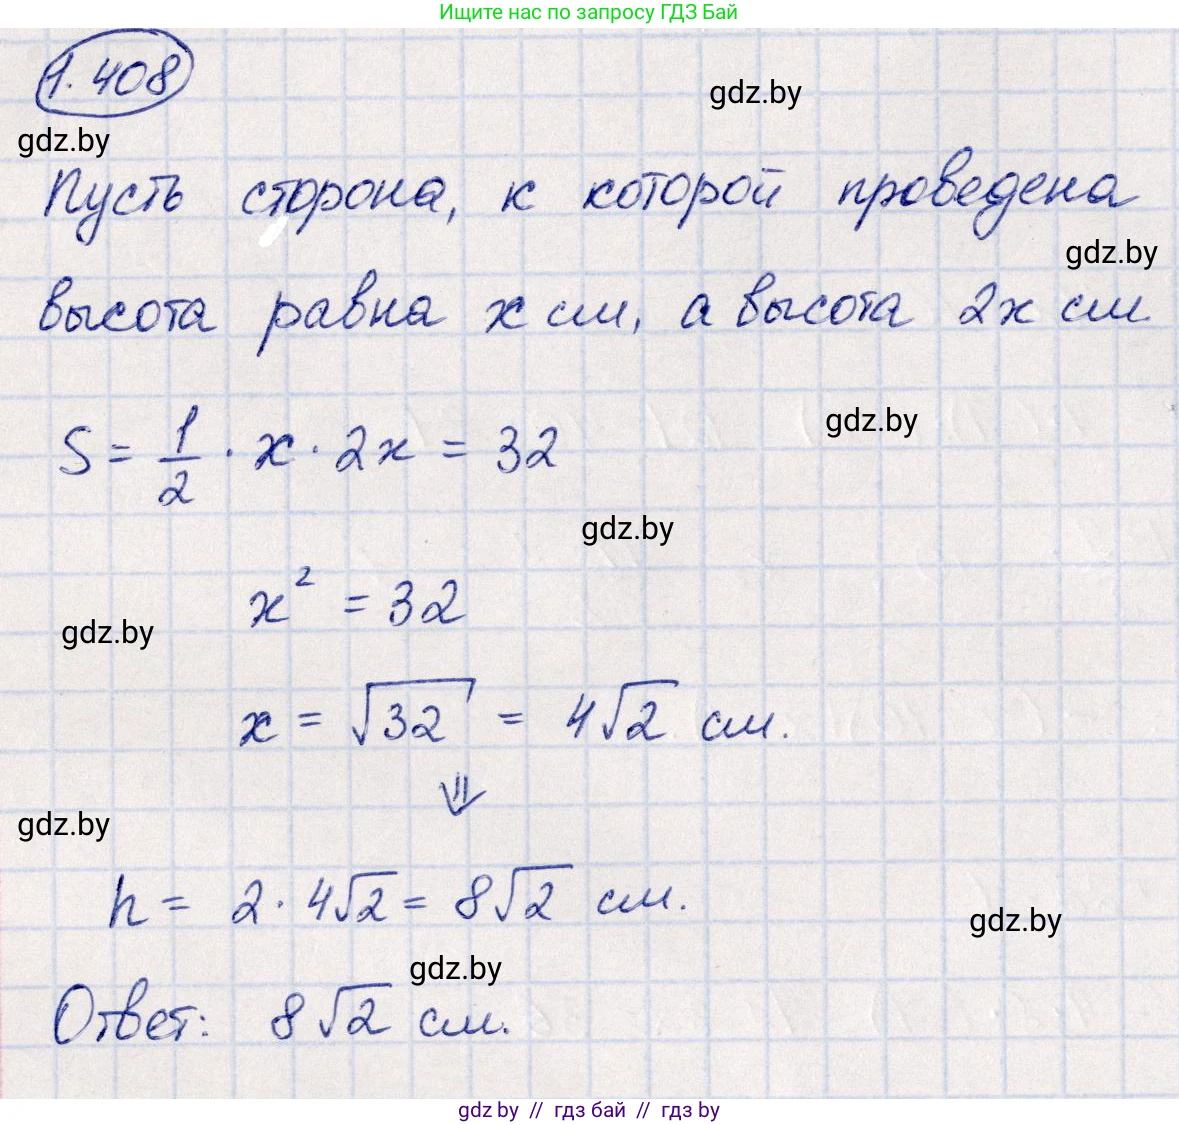 Ищите нас по запросу ГДЗ Бай
1.408
gdz.by
gdz.by
Пусть сторона, к которой проведена
gdz.by
высота равна x см, а высота 2x см.
gdz.by
S = 1/2 · x · 2x = 32
gdz.by
x² = 32
gdz.by
x = √32 = 4√2 см.
⇓
gdz.by
h = 2 · 4√2 = 8√2 см.
gdz.by
gdz.by
Ответ: 8√2 см.
gdz by // гдз бай // гдз by